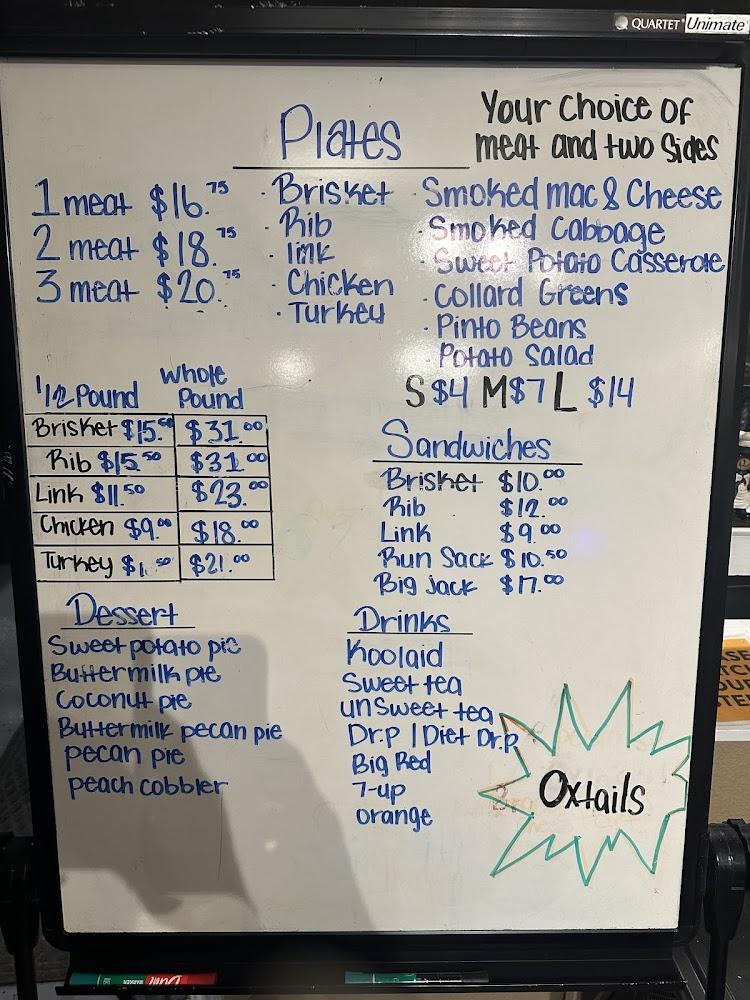 QUARTET Unimate
Plates
Your Choice of
meat and two Sides
1 meat $16.75
2 meat $18.75
3 meat $20.75
· Brisket
· Rib
· link
· Chicken
· Turkey
· Smoked mac & Cheese
· Smoked Cabbage
· Sweet Potato Casserole
· Collard Greens
· Pinto Beans
· Potato Salad
S $4 M $7 L $14
1/2 Pound Whole Pound
Brisket $15.50 $31.00
Rib $15.50 $31.00
Link $11.50 $23.00
Chicken $9.00 $18.00
Turkey $21.00
Sandwiches
Brisket $10.00
Rib $12.00
Link $9.00
Run Sack $10.50
Big Jack $17.00
Dessert
Sweet potato pie
Buttermilk pie
Coconut pie
Buttermilk pecan pie
pecan pie
peach cobbler
Drinks
Koolaid
Sweet tea
unSweet tea
Dr.P | Diet Dr.P
Big Red
7-up
orange
Oxtails